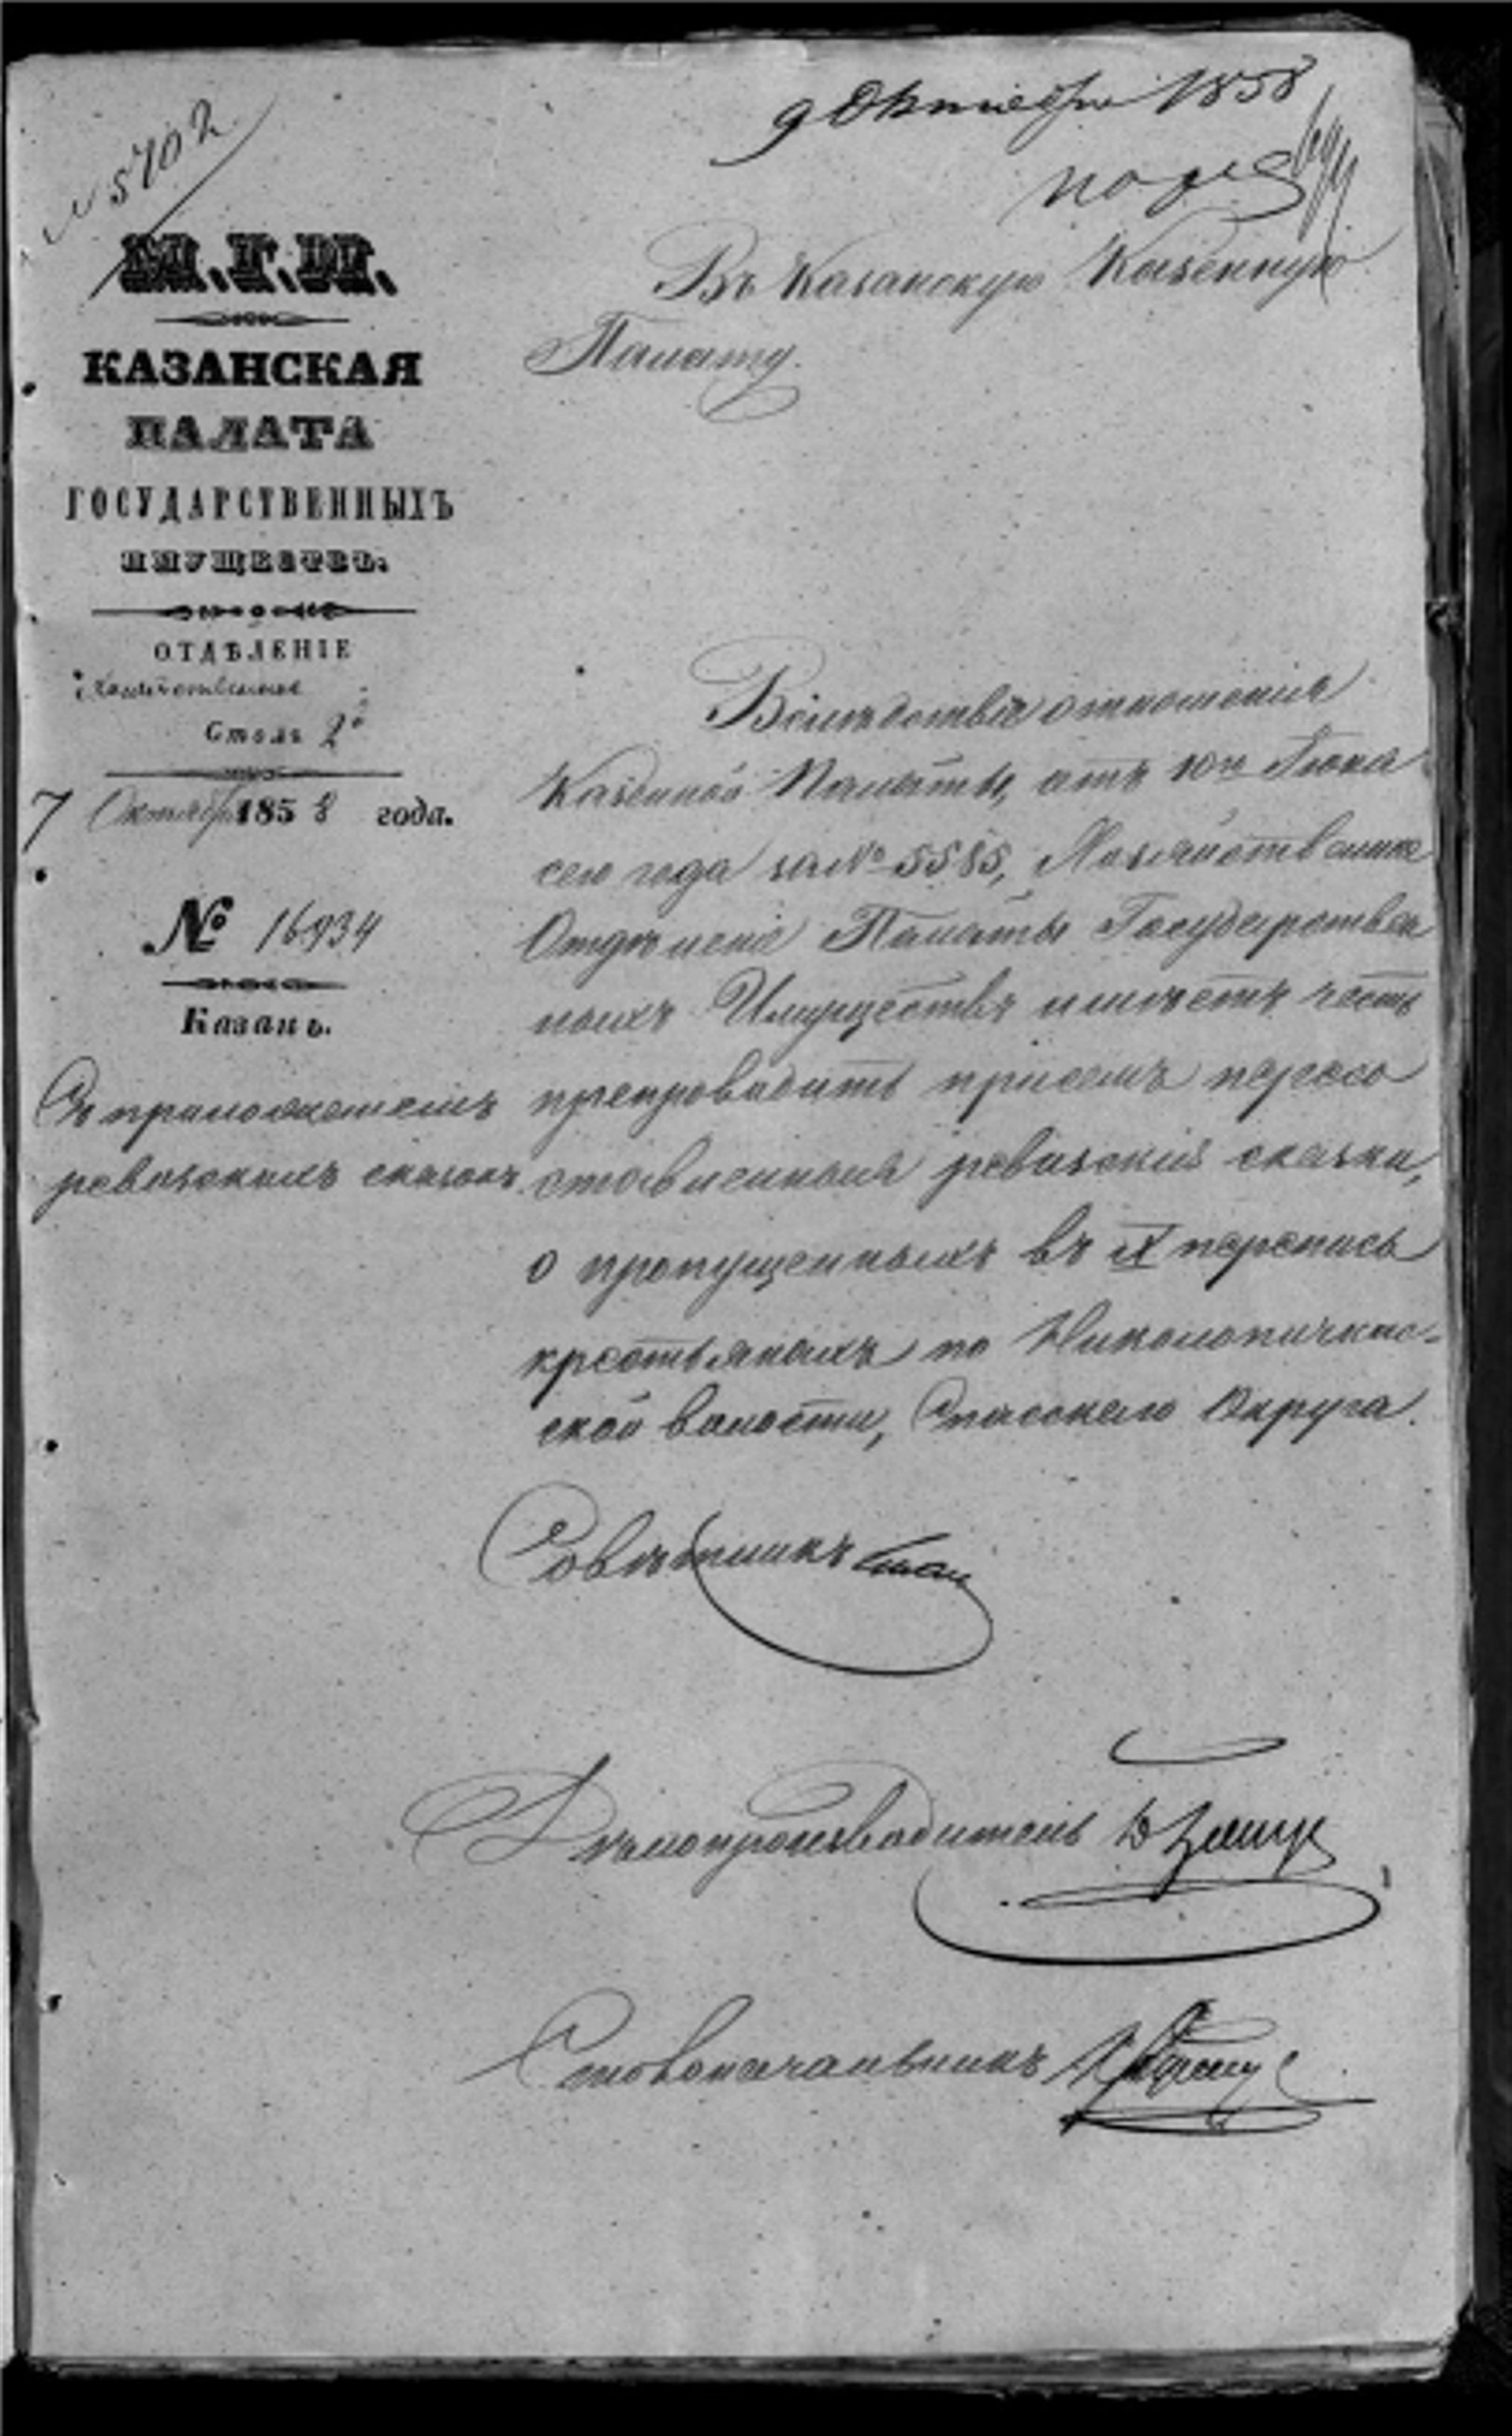 9 Октября 1858
№ 5702
М.Г.И.
КАЗАНСКАЯ
ПАЛАТА
ГОСУДАРСТВЕННЫХЪ
ИМУЩЕСТВЪ.
ОТДѢЛЕНІЕ
Хозяйственное
Столъ 2й
7 Октября 1858 года.
№ 16934
Казань.
Съ приложеніемъ
ревизскихъ сказокъ.
Въ Казанскую Казенную
Палату.
Вслѣдствіе отношенія
Казенной Палаты, отъ 10го Іюня
сего года за № 5585, Хозяйственное
Отдѣленіе Палаты Государствен
ныхъ Имуществъ имѣетъ честь
препроводить при семъ пересо
ставленныя ревизскія сказки,
о пропущенныхъ въ IX перепись
крестьянахъ по Николопичкас-
ской волости, Спасскаго Округа.
Совѣтникъ
Дѣлопроизводитель
Столоначальникъ